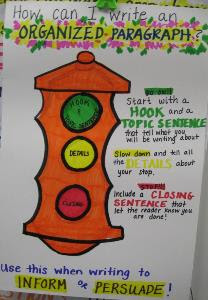 How can I write an
ORGANIZED-PARAGRAPH?
HOOK &
TOPIC SENTENCE
DETAILS
CLOSING
GO ON!!
Start with a
HOOK and a
TOPIC SENTENCE
that tell what you
will be writing about
Slow down and tell all
the DETAILS about
your stop.
STOP!!
Include a CLOSING
SENTENCE that
let the reader know you
are done!
Use this when writing to
INFORM or PERSUADE!